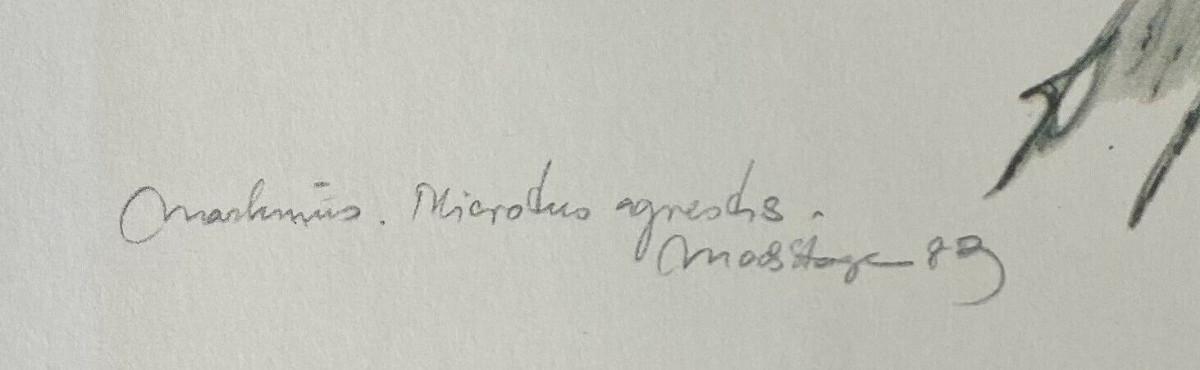 Markmus. Microtus agrestis.
Mads Stage 83